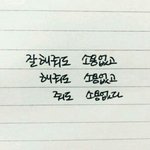 잘해줘도 소용없고
해줘도 소용없고
줘도 소용없다